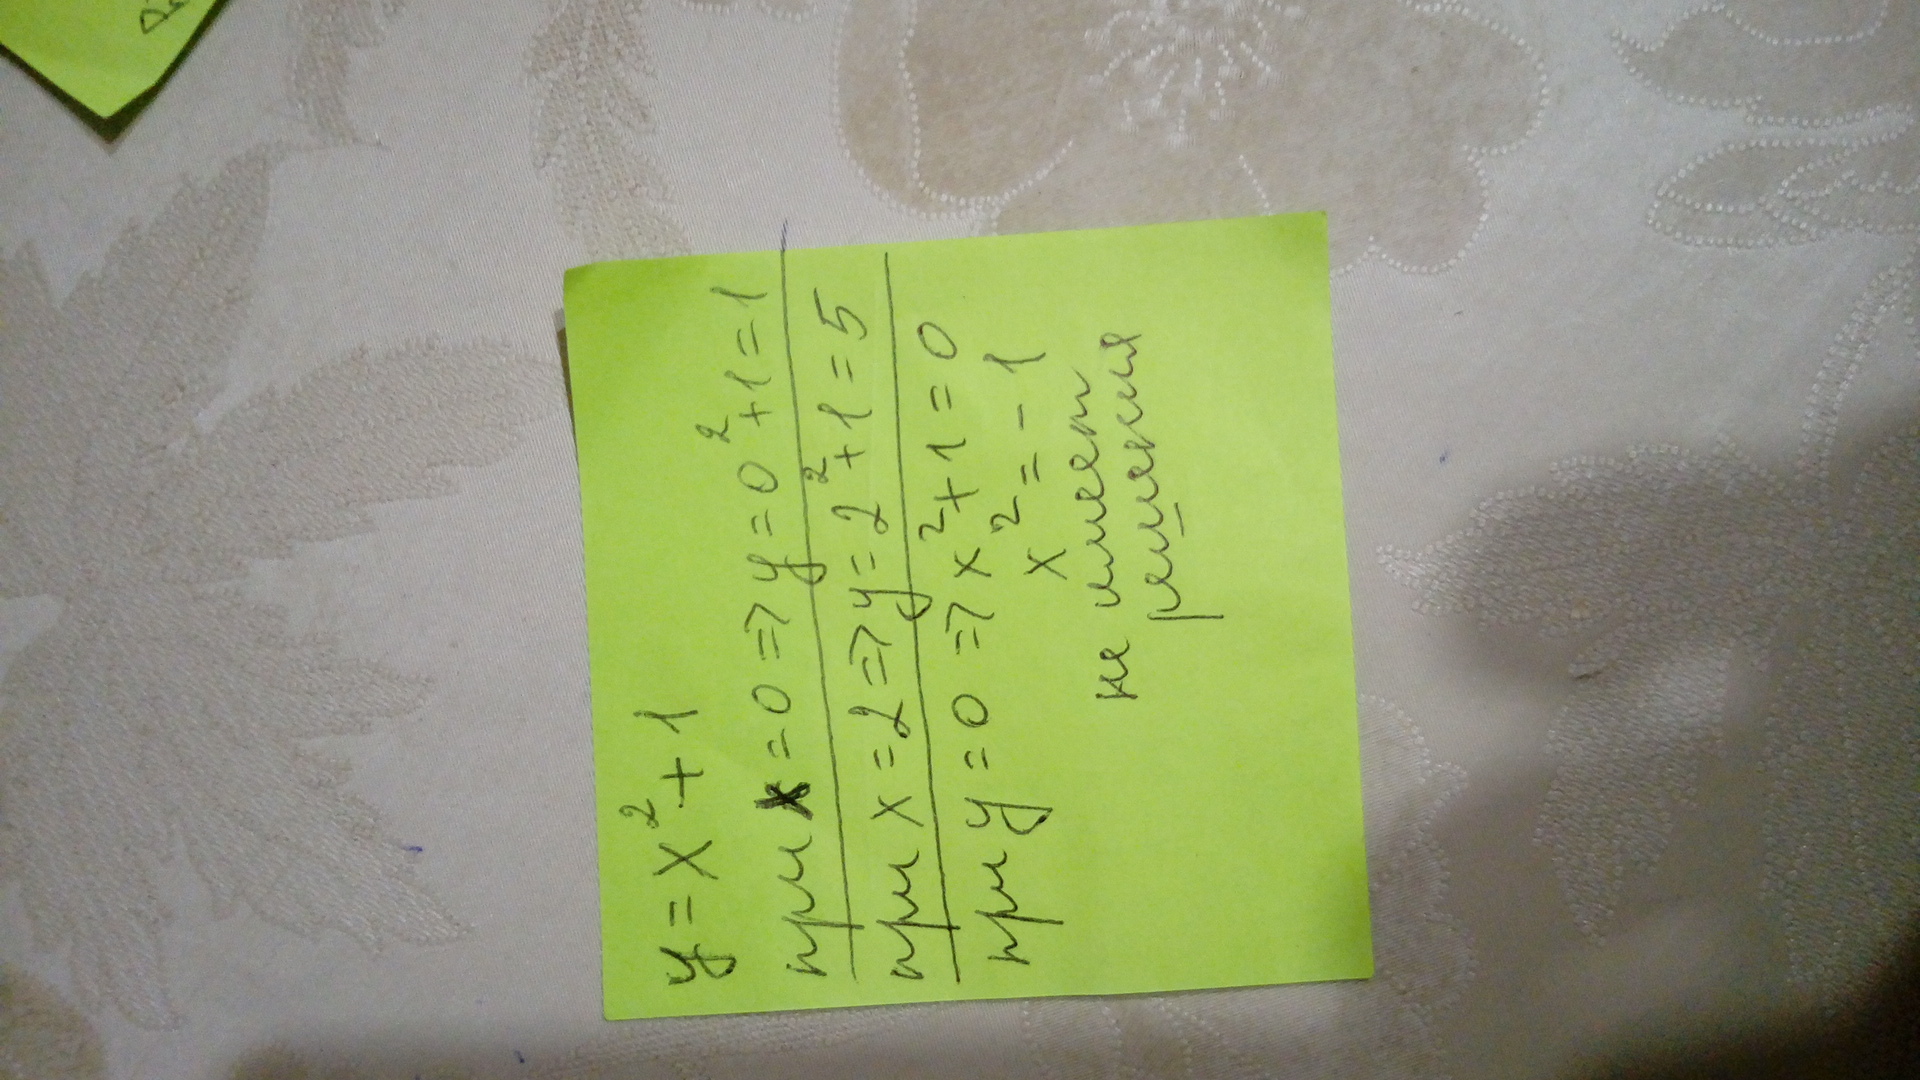 y = x² + 1
при x = 0 => y = 0² + 1 = 1
при x = 2 => y = 2² + 1 = 5
при y = 0 => x² + 1 = 0
x² = - 1
не имеет
решения